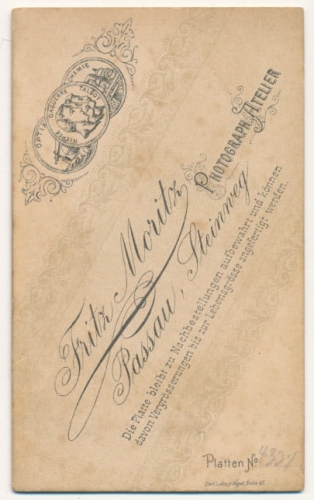 OPTIK
CHEMIE
DAGUERRE
TALBOT
NIEPCE
PHOTOGRAPH. ATELIER
Fritz Moritz
Passau, Steinweg
Die Platte bleibt zu Nachbestellungen aufbewahrt und können
davon Vergrösserungen bis zur Lebensgrösse angefertigt werden.
Platten No